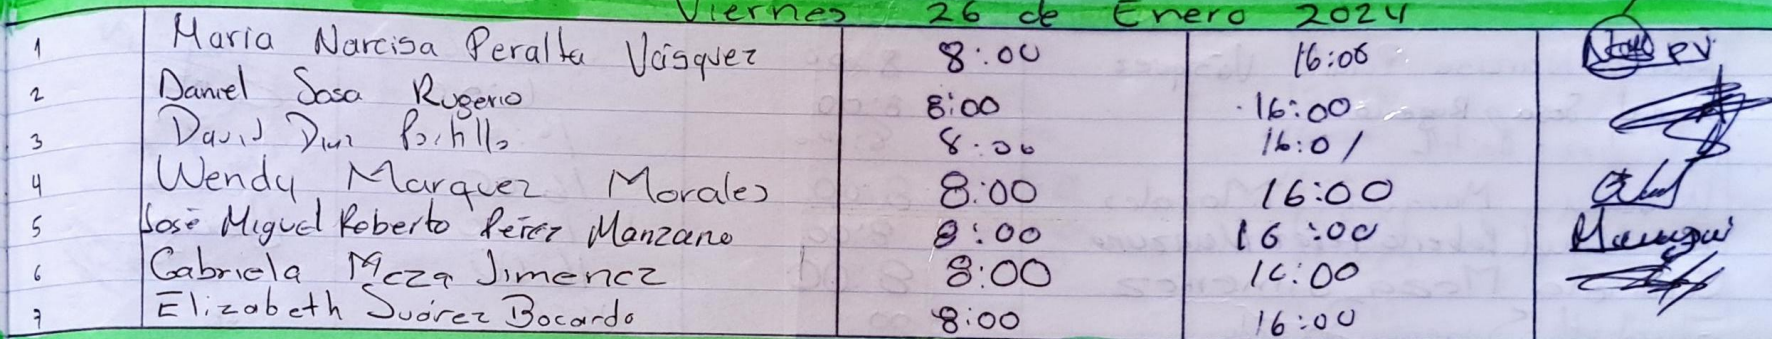 Viernes 26 de Enero 2024
1 Maria Narcisa Peralta Vásquez 8:00 16:06 PV
2 Daniel Sosa Rugerio 8:00 16:00
3 David Diaz Portillo 8:00 16:01
4 Wendy Marquez Morales 8:00 16:00
5 José Miguel Roberto Pérez Manzano 8:00 16:00
6 Gabriela Meza Jimenez 8:00 16:00
7 Elizabeth Suárez Bocardo 8:00 16:00